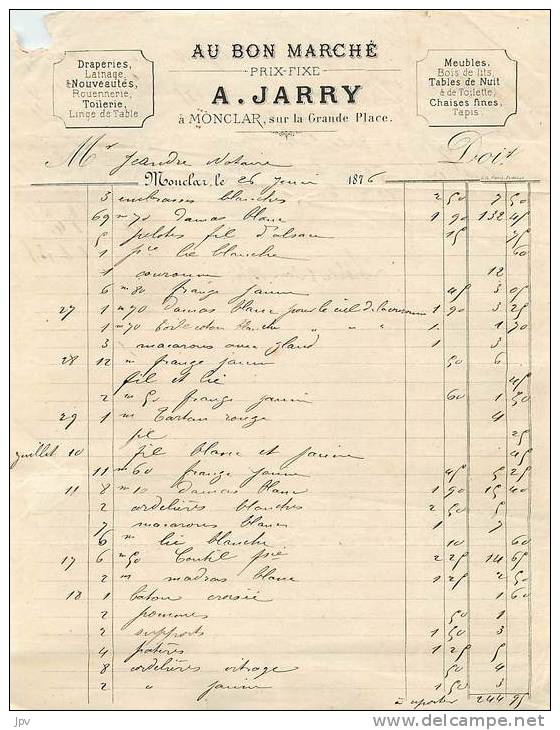 Draperies,
Lainage,
Nouveautés,
Rouennerie,
Toilerie,
Linge de Table
AU BON MARCHÉ
PRIX-FIXE
A. JARRY
à MONCLAR, sur la Grande Place.
Meubles,
Bois de lits,
Tables de Nuit
& de Toilette,
Chaises fines,
Tapis.
Mr Jeandre Notaire Doit
Monclar, le 26 Juin 1876
3 embrasses blanches 2 50 7 50
69 m 70 damas blanc 1 90 132 45
5 pelotes fil d'alsace 15 75
1 pce lié blanche 60
1 couronne 12
6 m 80 frange jaune 45 3 05
27 1 m 70 damas blanc pour le ciel de la couronne 1 90 3 25
1 m 70 blanche " " " 1 1 70
3 macarons avec gland 1 3
28 12 m frange jaune 50 6
fil et lié 45
2 m 50 frange jaune 60 1 50
29 1 m tartan rouge 4
25
juillet 10 fil blanc et jaune 45
11 m 60 frange jaune 45 5 25
11 8 m 10 damas blanc 1 90 15 40
2 cordelières blanches 2 50 5
7 macarons blancs 1 7
6 m lié blanche 10 60
17 6 m 50 coutil 2 25 14 65
2 m madras blanc 1 25 2 50
18 1 baton croisée 1 60
2 pommes 50 1
2 supports 1 50 3
4 patères 1 25 5
8 cordelières vitrage 50 4
2 " jaune 1 50 3
à reporter 244 95
jpv
www.delcampe.net